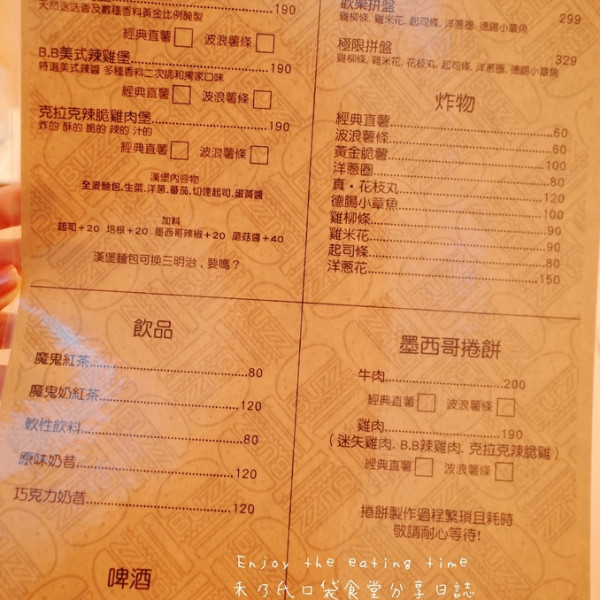 天然迷迭香及數種香料黃金比例醃製
190
經典直薯 波浪薯條
B.B美式辣雞堡 190
特選美式辣醬 多種香料二次調和獨家口味
經典直薯 波浪薯條
克拉克辣脆雞肉堡 190
炸的 酥的 脆的 辣的 汁的
經典直薯 波浪薯條
漢堡內容物
全麥麵包.生菜.洋蔥.番茄.切達起司.蛋黃醬
加料
起司+20 培根+20 墨西哥辣椒+20 蘑菇醬+40
漢堡麵包可換三明治，要嗎？
飲品
魔鬼紅茶 80
魔鬼奶紅茶 120
軟性飲料 80
原味奶昔 120
巧克力奶昔 120
啤酒
歡樂拼盤 299
雞柳條. 雞米花. 起司條. 洋蔥圈. 德腸小章魚
極限拼盤 329
雞柳條. 雞米花. 花枝丸. 起司條. 洋蔥圈. 德腸小章魚
炸物
經典直薯 60
波浪薯條 60
黃金脆薯 100
洋蔥圈 80
真・花枝丸 120
德腸小章魚 100
雞柳條 90
雞米花 90
起司條 80
洋蔥花 150
墨西哥捲餅
牛肉 200
經典直薯 波浪薯條
雞肉 190
（迷失雞肉. B.B辣雞肉. 克拉克辣脆雞）
經典直薯 波浪薯條
捲餅製作過程繁瑣且耗時
敬請耐心等待!
Enjoy the eating time
禾乃氏口袋食堂分享日誌